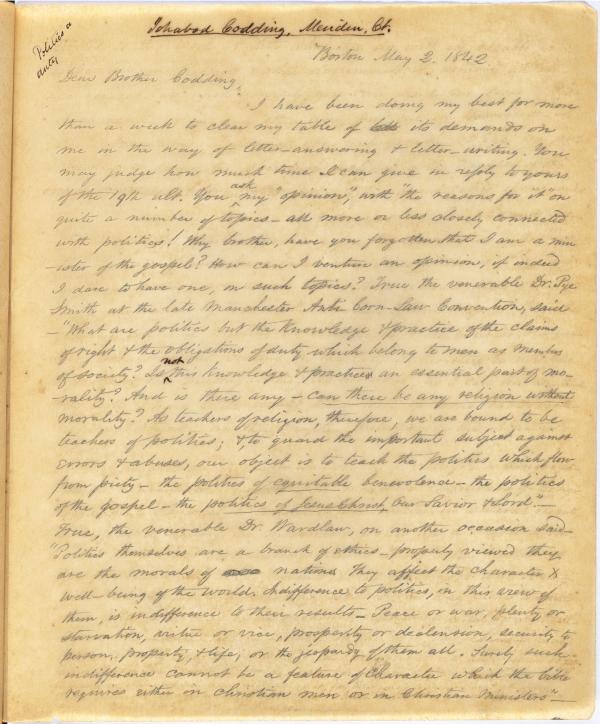 Ichabod Codding, Meriden, Ct.
Politics a
duty
Boston May 2, 1842
Dear Brother Codding,
I have been doing my best for more
than a week to clear my table of its demands on
me in the way of letter-answering & letter-writing. You
may judge how much time I can give in reply to yours
of the 19th ult. You ask my "opinion", with "the reasons for it" on
quite a number of topics - all more or less closely connected
with politics! Why brother, have you forgotten that I am a min
ister of the gospel? How can I venture an opinion, if indeed
I dare to have one, on such topics? True the venerable Dr. Pye
Smith at the late Manchester Anti Corn-Law Convention, said
- "What are politics but the knowledge & practice of the claims
of right & the obligations of duty which belong to men as members
of society? Is not this knowledge & practice an essential part of mo-
rality? And is there any - can there be any religion without
morality? As teachers of religion, therefore, we are bound to be
teachers of politics; & to guard the important subject against
errors & abuses, our object is to teach the politics which flow
from piety - the politics of equitable benevolence - the politics
of the gospel - the politics of Jesus Christ, Our Savior & Lord". -
True, the venerable Dr. Wardlaw, on another occasion said -
"Politics themselves are a branch of ethics - properly viewed they
are the morals of nations. They affect the character &
well-being of the world. Indifference to politics, in this view of
them, is indifference to their results - Peace or war, plenty or
starvation, virtue or vice, prosperity or declension, security to
person, property, & life, or the jeopardy of them all. Surely such
indifference cannot be a feature of Character which the bible
requires either in christian men or in Christian Ministers" -